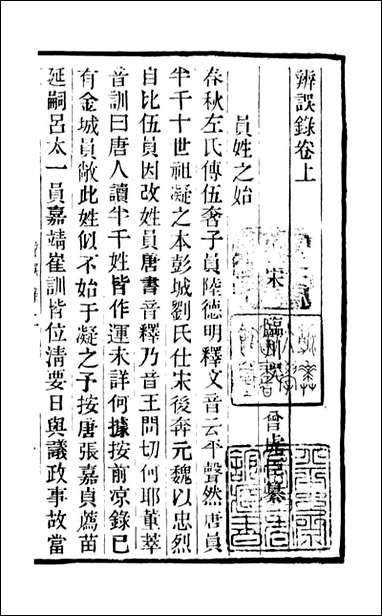 辨誤錄卷上
宋 臨川 曾 纂
員姓之始
春秋左氏傳伍奢子員陸德明釋文音云平聲然唐員
半千十世祖凝之本彭城劉氏仕宋後奔元魏以忠烈
自比伍員因改姓員唐書音釋乃音王問切何耶董萃
音訓曰唐人讀半千姓皆作運未詳何據按前凉錄已
有金城員敞此姓似不始于凝之予按唐張嘉貞薦苗
延嗣呂太一員嘉靖崔訓皆位淸要日與議政事故當